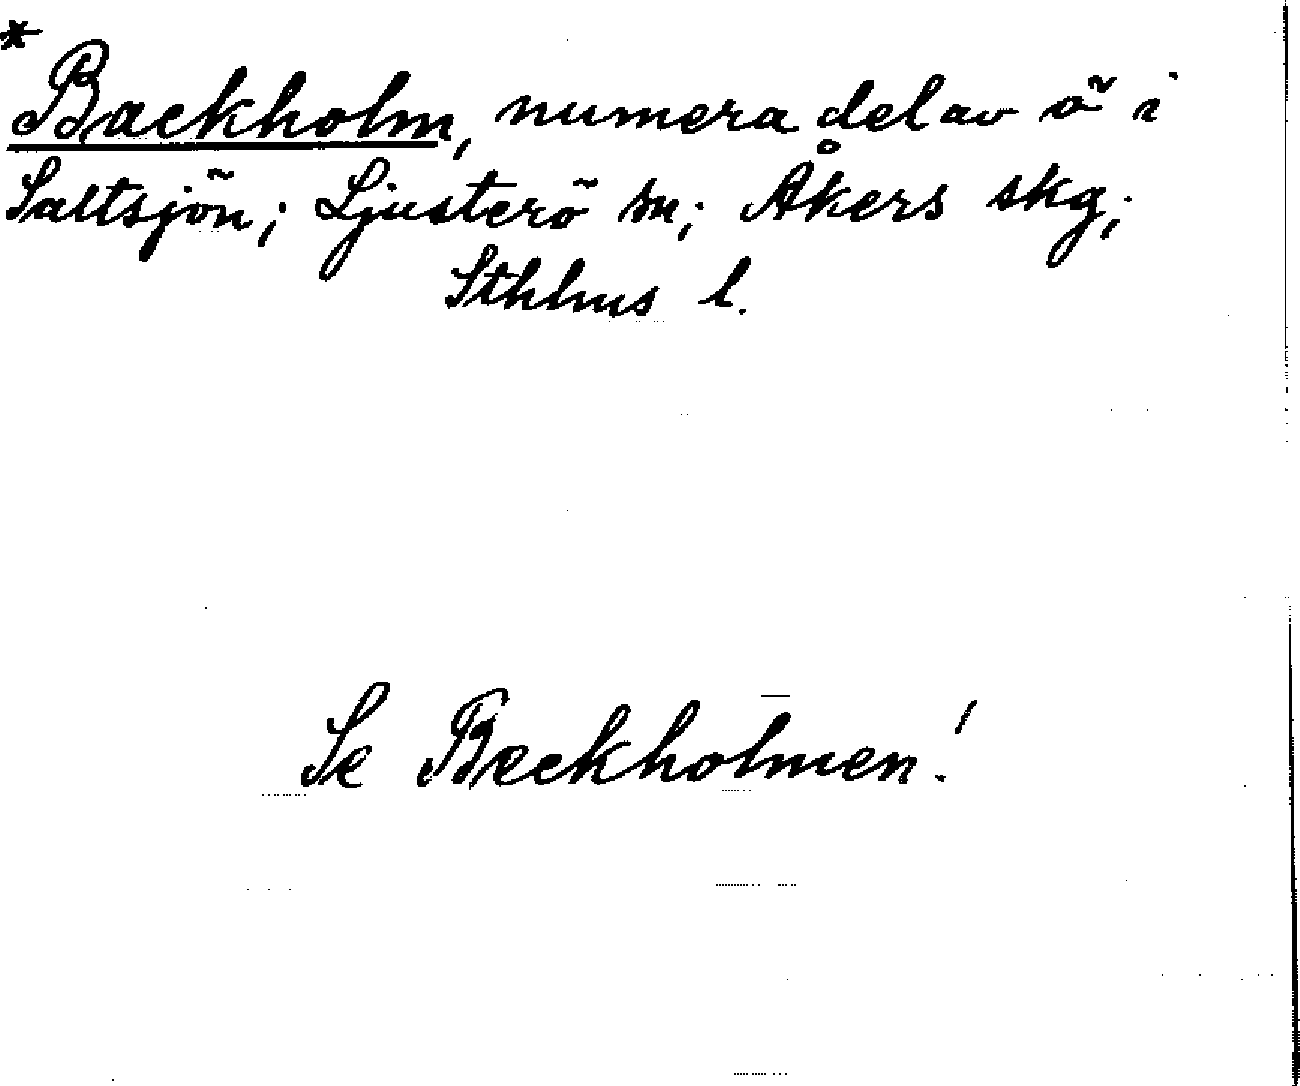 * Backholm, numera del av ö i
Saltsjön; Ljusterö sn; Åkers skg;
Sthlms l.
Se Beckholmen!